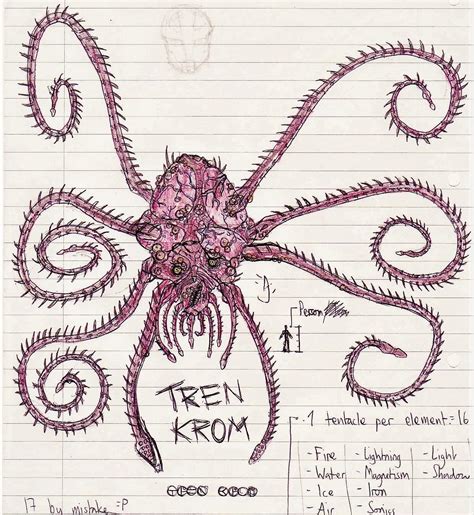 Person
TREN
KROM
1 tentacle per element = 16
- Fire - Lightning - Light
- Water - Magnetism - Shadow
- Ice - Iron
- Air - Sonics
TREN KROM
17 by mistake =P